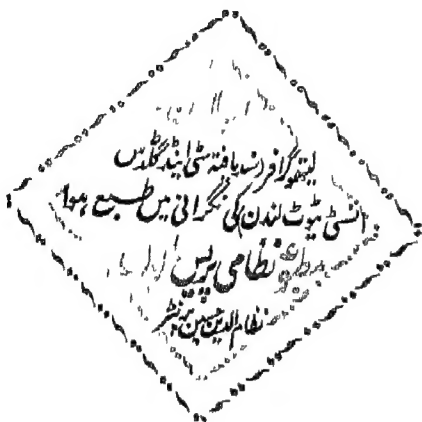 لیتھوگرافر سند یافتہ سٹی اینڈ گلڈس
انسٹی ٹیوٹ لندن کی نگرانی میں طبع ہوا
مطبوعہ نظامی پریس
نظام الدین حسین پرنٹر